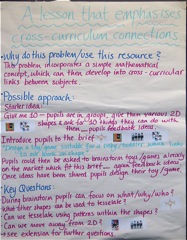 A lesson that emphasises
cross-curriculum connections
• Why do this problem/use this resource?
This problem incorporates a simple mathematical
concept, which can then develop into cross-curricular
links between subjects.
• Possible approach:
Starter idea:
Give me 10 – pupils are in groups, give them various 2D
shapes & ask for 30 things they can do with
them pupils feedback ideas
Introduce pupils to the brief
Design a toy/game suitable for a
Pupils could then be asked to brainstorm toys/games already
on the market which fit this brief again feedback ideas
Once ideas have been shared pupils design their toy/game.
• Key Questions:
During brainstorm pupils can focus on what/why/who?
What other shapes can be used to tesselate?
• Can we tesselate using patterns within the shapes?
• Can we move away from 2D?
• See extension for further questions